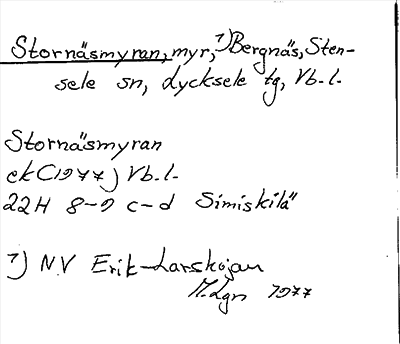 Stornäsmyran, myr, 1) Bergnäs, Sten-
sele sn, Lycksele tg, Vb. l.
Stornäsmyran
ek (1977) Vb. l.
22H 8-9 c-d Simiskilä
1) NV Erik-Larskojan
M.Lgn 1977